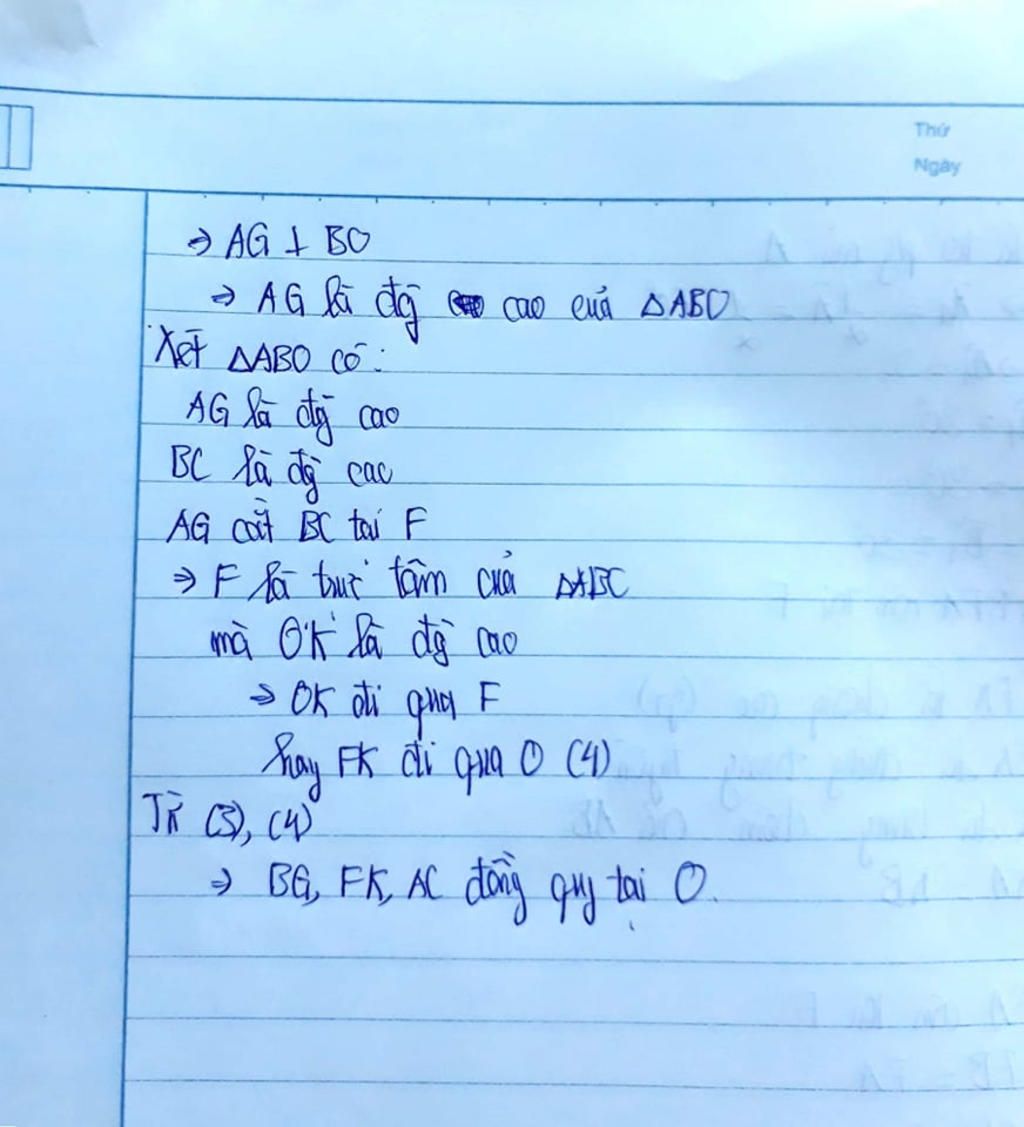 Thứ
Ngày
⇒ AG ⊥ BO
⇒ AG là đg̀ cao của ΔABO
Xét ΔABO có:
AG là đg̀ cao
BC là đg̀ cao
AG cắt BC tại F
⇒ F là trực tâm của ΔABC
mà OK là đg̀ cao
⇒ OK đi qua F
hay FK đi qua O (4)
Từ (3), (4)
⇒ BG, FK, AC đồng quy tại O.